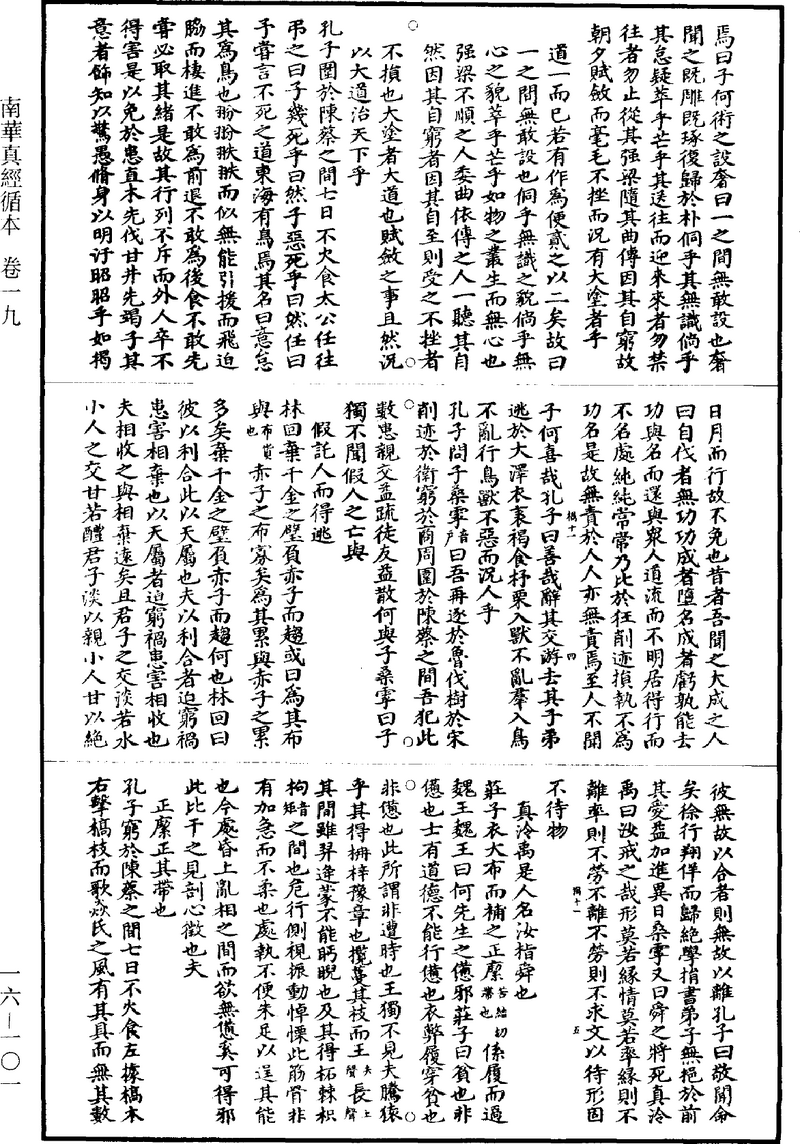 焉曰子何術之設奢曰一之間無敢設也奢
聞之既雕既琢復歸於朴侗乎其無識倘乎
其怠疑萃乎芒乎其送往而迎來來者勿禁
往者勿止從其强梁隨其曲傅因其自窮故
朝夕賦斂而毫毛不挫而況有大塗者乎
道一而已若有作為便貳之以二矣故曰
一之間無敢設也侗乎無識之貌倘乎無
心之貌萃乎芒乎如物之叢生而無心也
强梁不順之人委曲依傅之人一聽其自
然因其自窮者因其自至則受之不挫者
不損也大塗者大道也賦斂之事且然況
以大道治天下乎
孔子圍於陳蔡之間七日不火食太公任往
弔之曰子幾死乎曰然子惡死乎曰然任曰
子嘗言不死之道東海有鳥焉其名曰意怠
其為鳥也翂翂翐翐而似無能引援而飛迫
脇而棲進不敢為前退不敢為後食不敢先
嘗必取其緒是故其行列不斥而外人卒不
得害是以免於患直木先伐甘井先竭子其
意者飾知以驚愚脩身以明汙昭昭乎如揭
日月而行故不免也昔者吾聞之大成之人
曰自伐者無功功成者墮名成者虧孰能去
功與名而還與衆人道流而不明居得行而
不名處純純常常乃比於狂削迹捐執不為
功名是故無責於人人亦無責焉至人不聞
子何喜哉孔子曰善哉辭其交游去其子弟
逃於大澤衣裘褐食杼栗入獸不亂羣入鳥
不亂行鳥獸不惡而況人乎
孔子問子桑雽音戶曰吾再逐於魯伐樹於宋
削迹於衛窮於商周圍於陳蔡之間吾犯此
數患親交益疏徒友益散何與子桑雽曰子
獨不聞假人之亡與
假託人而得逃
林回棄千金之璧負赤子而趨或曰為其布
與布貨也赤子之布寡矣為其累與赤子之累
多矣棄千金之璧負赤子而趨何也林回曰
彼以利合此以天屬也夫以利合者迫窮禍
患害相棄也以天屬者迫窮禍患害相收也
夫相收之與相棄遠矣且君子之交淡若水
小人之交甘若醴君子淡以親小人甘以絶
彼無故以合者則無故以離孔子曰敬聞命
矣徐行翔佯而歸絶學捐書弟子無挹於前
其愛益加進異日桑雽又曰舜之將死真泠
禹曰汝戒之哉形莫若緣情莫若率緣則不
離率則不勞不離不勞則不求文以待形因
不待物
真泠禹是人名汝指舜也
莊子衣大布而補之正緳苦結切帶也係履而過
魏王魏王曰何先生之憊邪莊子曰貧也非
憊也士有道德不能行憊也衣弊履穿貧也
非憊也此所謂非遭時也王獨不見夫騰猿
乎其得枏梓豫章也攬蔓其枝而王去聲長上聲
其間雖羿逢蒙不能眄睨也及其得柘棘枳
枸矩音之間也危行側視振動悼慄此筋骨非
有加急而不柔也處埶不便未足以逞其能
也今處昏上亂相之間而欲無憊奚可得邪
此比干之見剖心徵也夫
正緳正其帶也
孔子窮於陳蔡之間七日不火食左據槁木
右擊槁枝而歌焱氏之風有其具而無其數
南華真經循本 卷一九
一六—一〇一